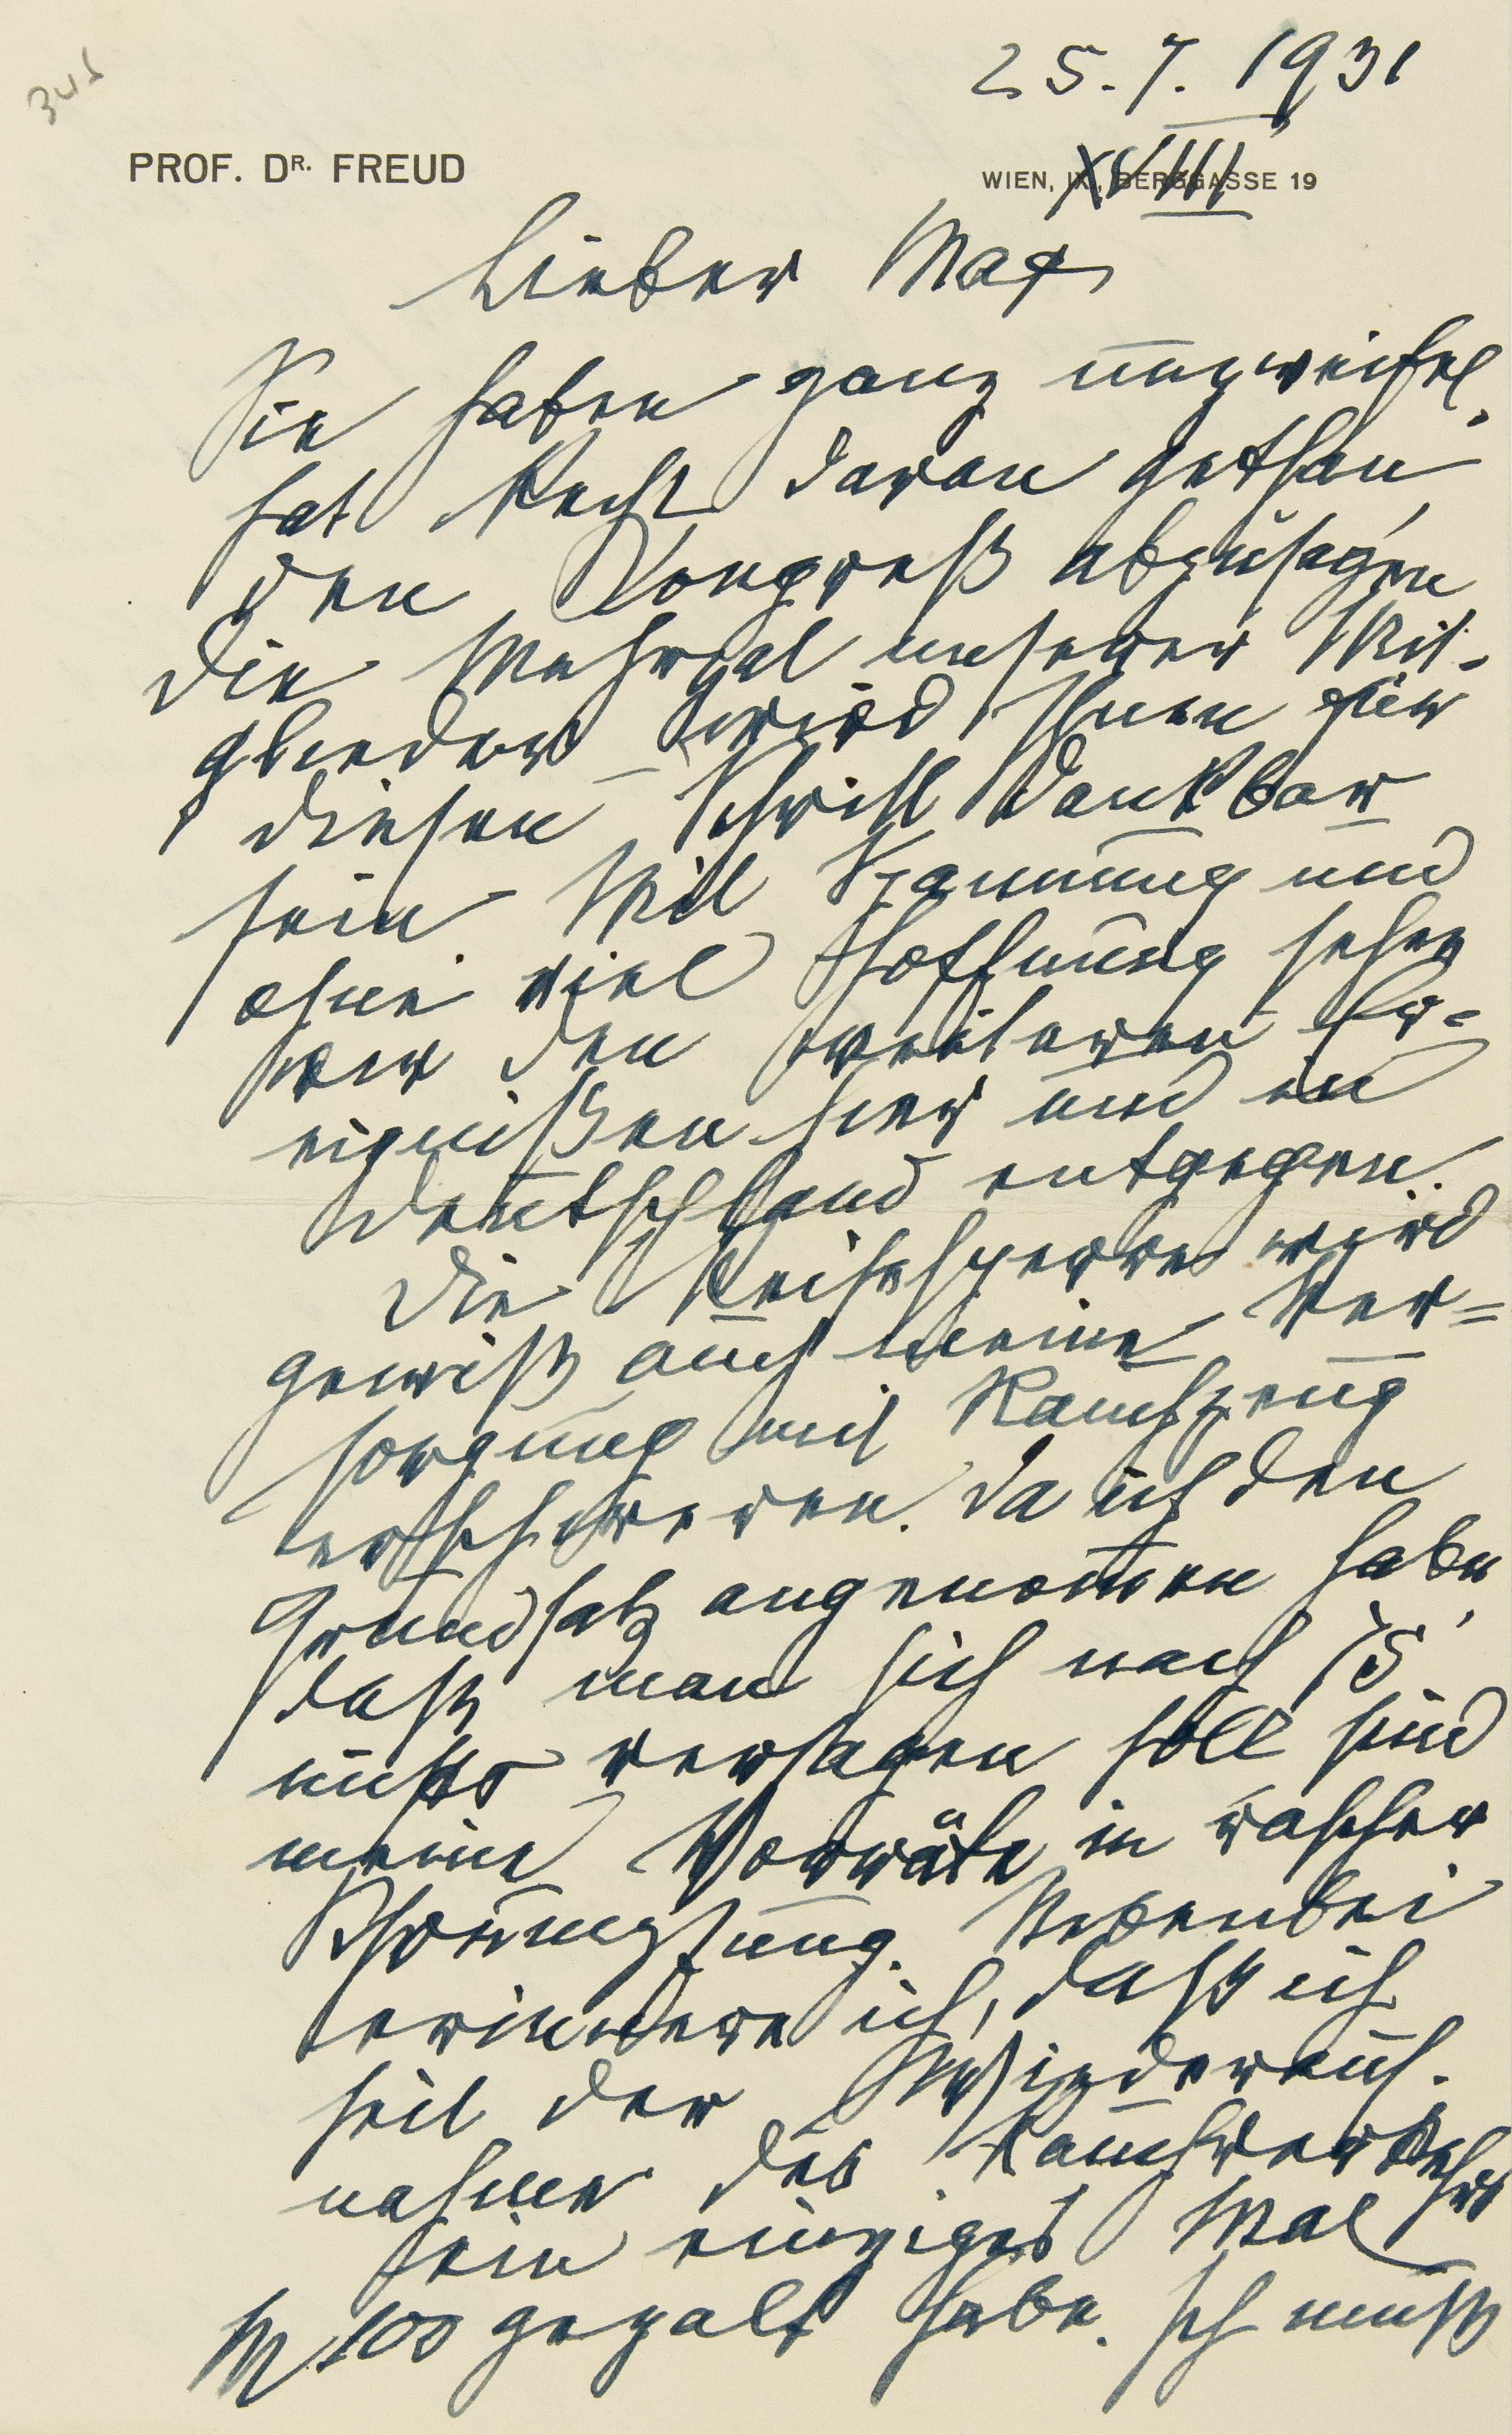 345
25.7.1931
PROF. DR. FREUD
WIEN, IX., BERGGASSE 19
XVIII
Lieber Max
Sie haben ganz unzweifel-
haft Recht daran gethan,
den Kongreß abzusagen
Die Mehrzal unserer Mit-
glieder wird Ihnen für
diesen Schritt dankbar
sein. Mit Spannung und
ohne viel Hoffnung sehen
wir den weiteren Er-
eignißen hier und in
Deutschland entgegen.
Die Reisesperre wird
gewiß auch meine Ver-
sorgung mit Rauchzeug
erschweren. Da ich den
Grundsatz angenommen habe,
daß man sich nach 75
nichts versagen soll sind
meine Vorräte in rascher
Schrumpfung. Nebenbei
erinnere ich, daß ich
seit der Wiederauf-
nahme des Rauchverkehrs
kein einziges Mal
M 100 gezalt habe. Ich muß